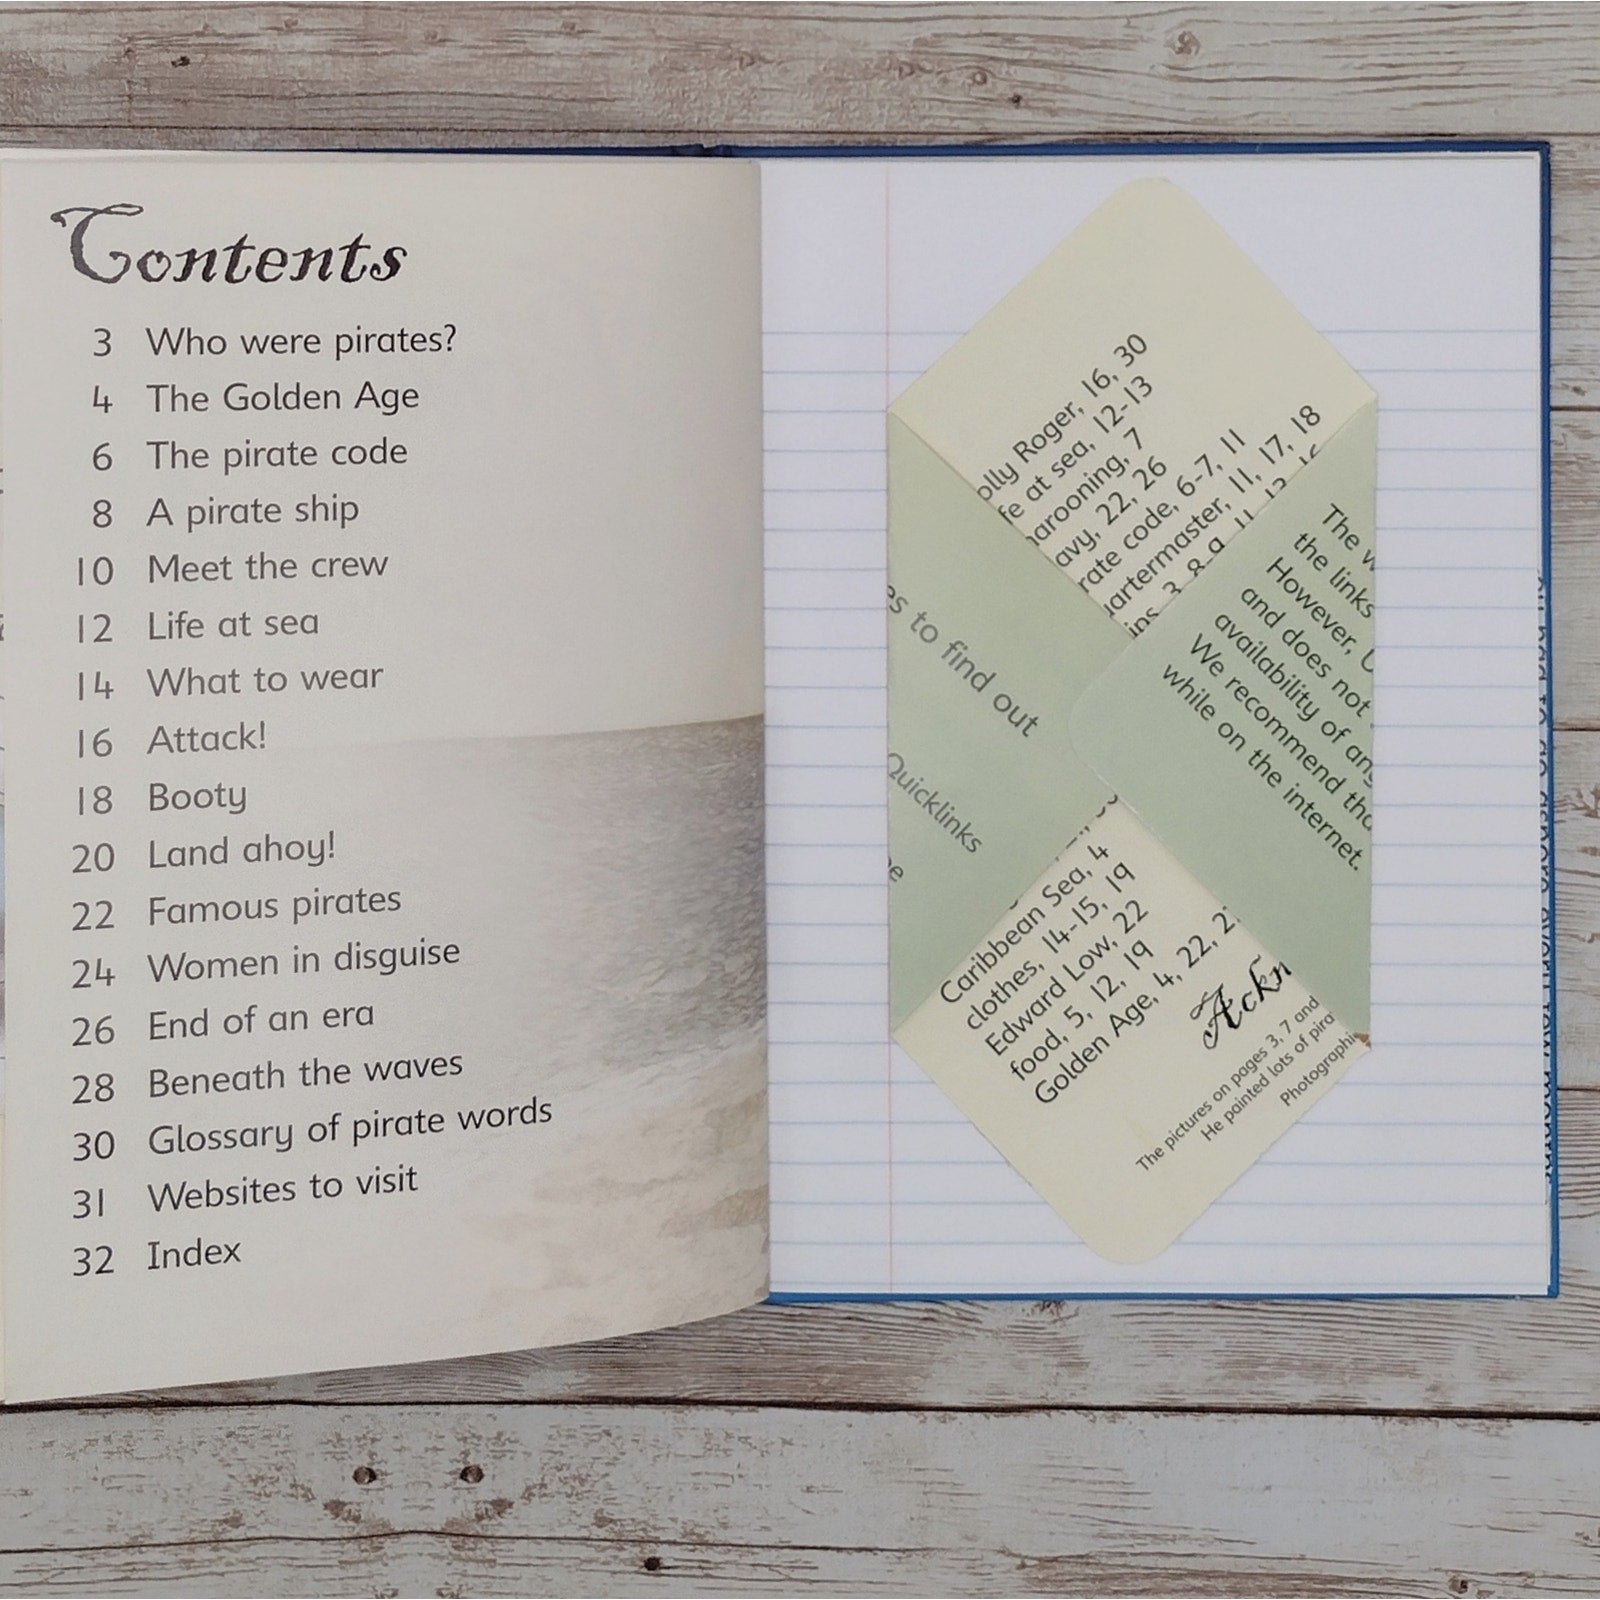 Contents
3 Who were pirates?
4 The Golden Age
6 The pirate code
8 A pirate ship
10 Meet the crew
12 Life at sea
14 What to wear
16 Attack!
18 Booty
20 Land ahoy!
22 Famous pirates
24 Women in disguise
26 End of an era
28 Beneath the waves
30 Glossary of pirate words
31 Websites to visit
32 Index
olly Roger, 16, 30
fe at sea, 12-13
arooning, 7
avy, 22, 26
rate code, 6-7, 11
uartermaster, 11, 17, 18
es to find out
Quicklinks
The w
the links
However, U
and does not
availability of any
We recommend tha
while on the internet.
Caribbean Sea, 4
clothes, 14-15, 19
Edward Low, 22
food, 5, 12, 19
Golden Age, 4, 22, 2
Ackn
The pictures on pages 3, 7 and
He painted lots of pira
Photographi